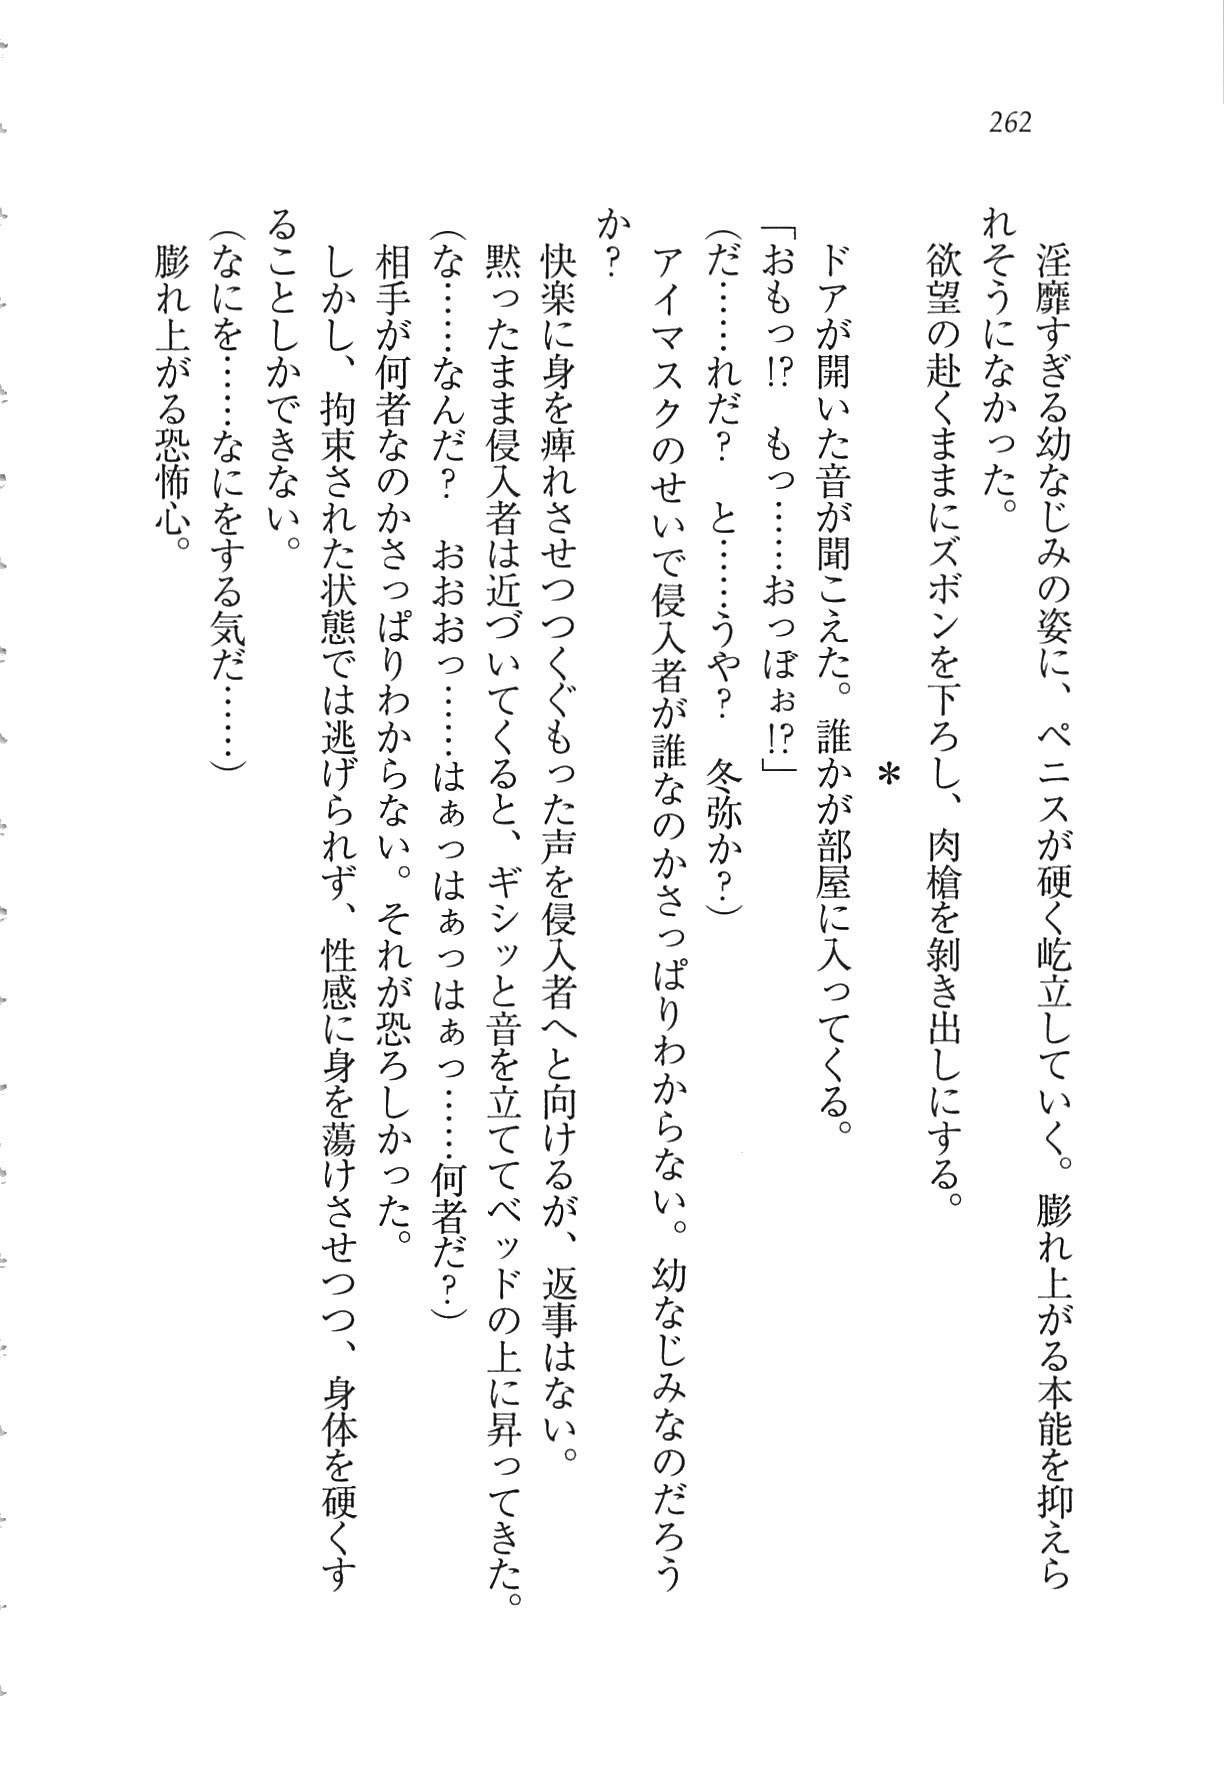 262
淫靡すぎる幼なじみの姿に、ペニスが硬く屹立していく。膨れ上がる本能を抑えら
れそうになかった。
欲望の赴くままにズボンを下ろし、肉槍を剝き出しにする。
＊
ドアが開いた音が聞こえた。誰かが部屋に入ってくる。
「おもっ!?　もっ……おっぽぉ!?」
（だ……れだ？　と……うや？　冬弥か？）
アイマスクのせいで侵入者が誰なのかさっぱりわからない。幼なじみなのだろう
か？
快楽に身を痺れさせつつくぐもった声を侵入者へと向けるが、返事はない。
黙ったまま侵入者は近づいてくると、ギシッと音を立ててベッドの上に昇ってきた。
（な……なんだ？　おおおっ……はぁっはぁっはぁっ……何者だ？）
相手が何者なのかさっぱりわからない。それが恐ろしかった。
しかし、拘束された状態では逃げられず、性感に身を蕩けさせつつ、身体を硬くす
ることしかできない。
（なにを……なにをする気だ……）
膨れ上がる恐怖心。